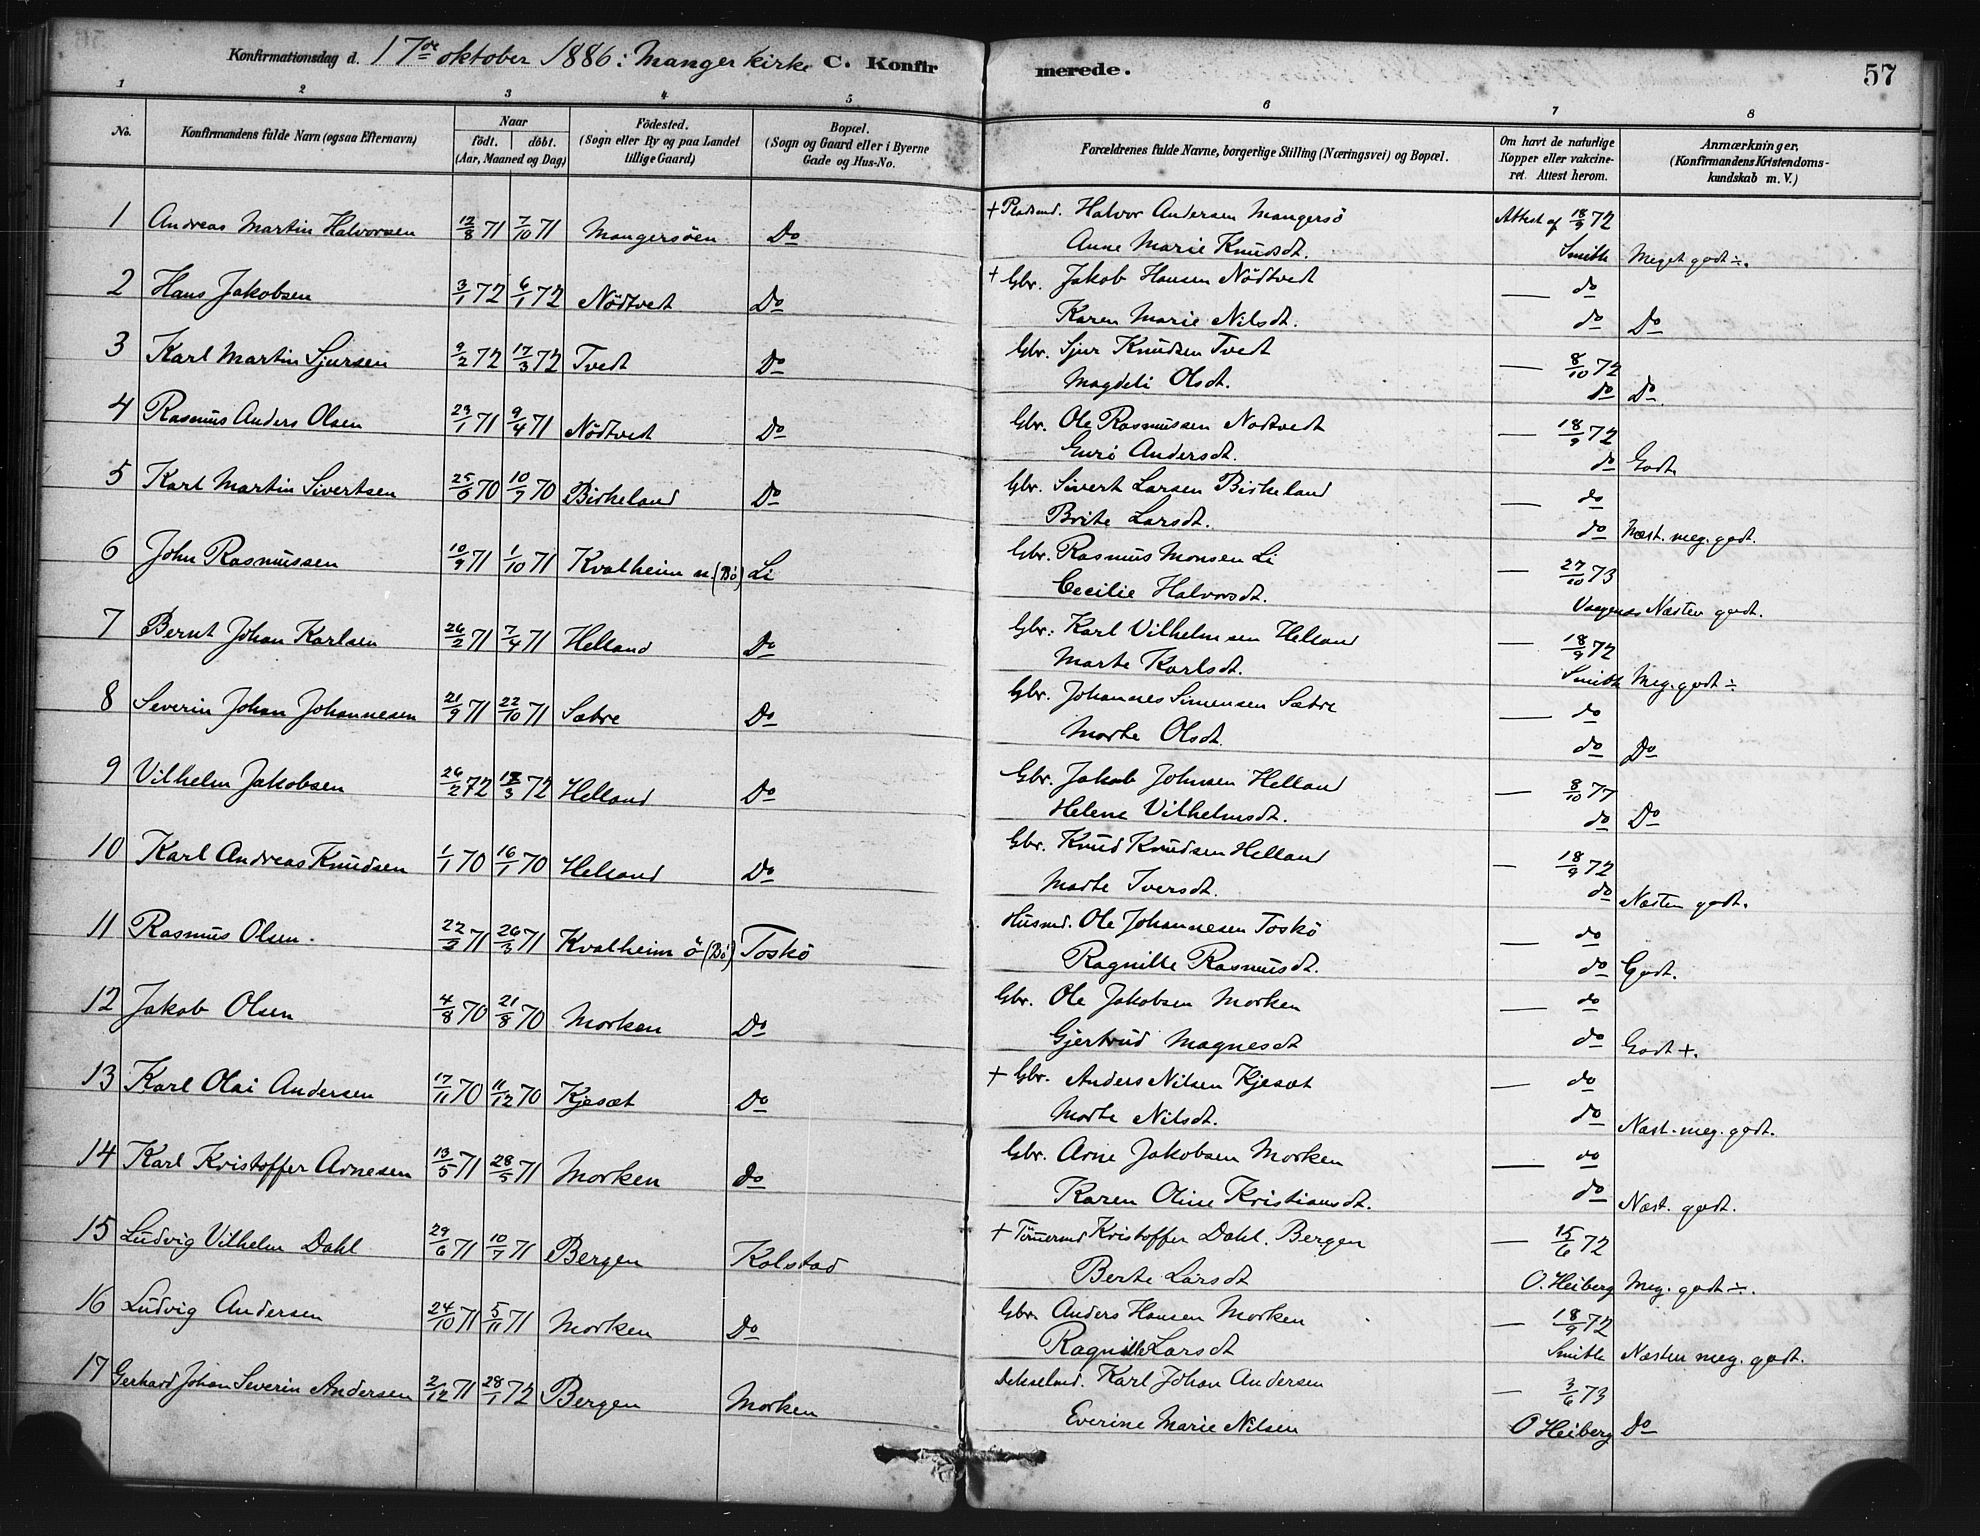 Konfirmationsdag d. 17de oktober 1886: Manger kirke C. Konfirmerede. 57
1 2 3 4 5 6 7 8
No. Konfirmandens fulde Navn (ogsaa Efternavn) Naar födt. döbt. (Aar, Maaned og Dag) Födested. (Sogn eller By og paa Landet tillige Gaard) Bopæl. (Sogn og Gaard eller i Byerne Gade og Hus-No. Forældrenes fulde Navne, borgerlige Stilling (Næringsvei) og Bopæl. Om havt de naturlige Kopper eller vakcineret. Attest herom. Anmærkninger. (Konfirmandens Kristendomskundskab m. V.)
1 Andreas Martin Halvorsen 12/8 71 7/10 71 Mangersöen Do + Pladsmd. Halvor Andersen Mangersö Attest af 18/9 72
Anne Marie Knudsdt. Smith Meget godt ÷.
2 Hans Jakobsen 3/1 72 6/1 72 Nödtvedt Do + Gbr. Jakob Hansen Nödtvedt — do
Karen Marie Nilsdt. do Do
3 Karl Martin Sjursen 9/2 72 17/3 72 Tvedt Do Gbr. Sjur Knudsen Tvedt — 8/10 72
Magdeli Olsdt. do Do
4 Rasmus Anders Olsen 29/1 71 9/4 71 Nödtvedt Do Gbr. Ole Rasmussen Nödtvedt — 18/9 72
Guri Andersdt. do Godt
5 Karl Martin Sivertsen 25/6 70 10/7 70 Birkeland Do Gbr. Sivert Larsen Birkeland — do
Brite Larsdt. do Næst. meg. godt.
6 John Rasmussen 10/9 71 1/10 71 Kvalheim n. (Bö) Li Gbr. Rasmus Monsen Li — 27/10 73
Cecilie Halvorsdt. Næsten godt.
7 Bernt Johan Karlsen 26/2 71 7/4 71 Helland Do Gbr. Karl Vilhelmsen Helland — 18/9 72
Marte Karlsdt. Smith Meg. godt ÷
8 Severin Johan Johannesen 21/9 71 22/10 71 Sætre Do Gbr. Johannes Simensen Sætre — do
Marte Olsdt. do Do
9 Vilhelm Jakobsen 26/2 72 /3 72 Helland Do Gbr. Jakob Johnsen Helland — 8/10 77
Helene Vilhelmsdt. do Do
10 Karl Andreas Knudsen 1/1 70 16/1 70 Helland Do Gbr. Knud Knudsen Helland — 18/9 72
Marte Iversdt. do Næsten godt.
11 Rasmus Olsen. 22/2 71 26/3 71 Kvalheim ö (Bö) Toskö Husmd. Ole Johannesen Toskö — do
Ragnille Rasmusdt. do Godt.
12 Jakob Olsen 4/8 70 21/8 70 Morken Do Gbr. Ole Jakobsen Morken — do
Gjertrud Magnesdt do Godt +.
13 Karl Olai Andersen 17/11 70 11/12 70 Kjesæt Do + Gbr. Anders Nilsen Kjesæt — do
Marte Nilsdt. do Næst. meg. godt.
14 Karl Kristoffer Arnesen 13/5 71 28/5 71 Morken do Gbr. Arne Jakobsen Morken — do
Karen Oline Kristiansdt. do Næst. godt.
15 Ludvig Vilhelm Dahl 29/6 71 10/7 71 Bergen Kolstad + Tömermd Kristoffer Dahl. Bergen — 15/6 72
Berte Larsdt O Heiberg Meg. godt ÷.
16 Ludvig Andersen 24/10 71 5/11 71 Morken Do Gbr. Anders Hansen Morken — 18/9 72
Ragnille Larsdt Smith Næsten meg. godt.
17 Gerhard Johan Severin Andersen 2/12 71 28/1 72 Bergen Morken Karl Johan Andersen — 3/6 73
Everine Marie Nilsen O Heiberg Do